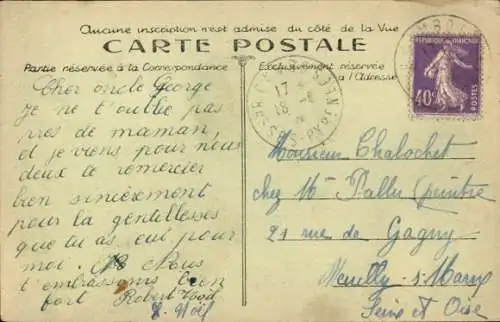 Aucune inscription n'est admise du côté de la Vue
CARTE POSTALE
Partie réservée à la Correspondance
Exclusivement réservée
à l'Adresse
RÉPUBLIQUE FRANÇAISE
40c
POSTES
17
18
Cher oncle George
je ne t'oublie pas
près de maman,
et je viens, pour nous
deux te remercier
bien sincèrement
pour la gentillesses
que tu as, eui pour
moi. Nous
t'embrassons bien
fort Robert
Noël
Monsieur Chalochet
chez Mr Pallu (peintre
21 rue de Gagny
Neuilly s/Marne
Seine et Oise